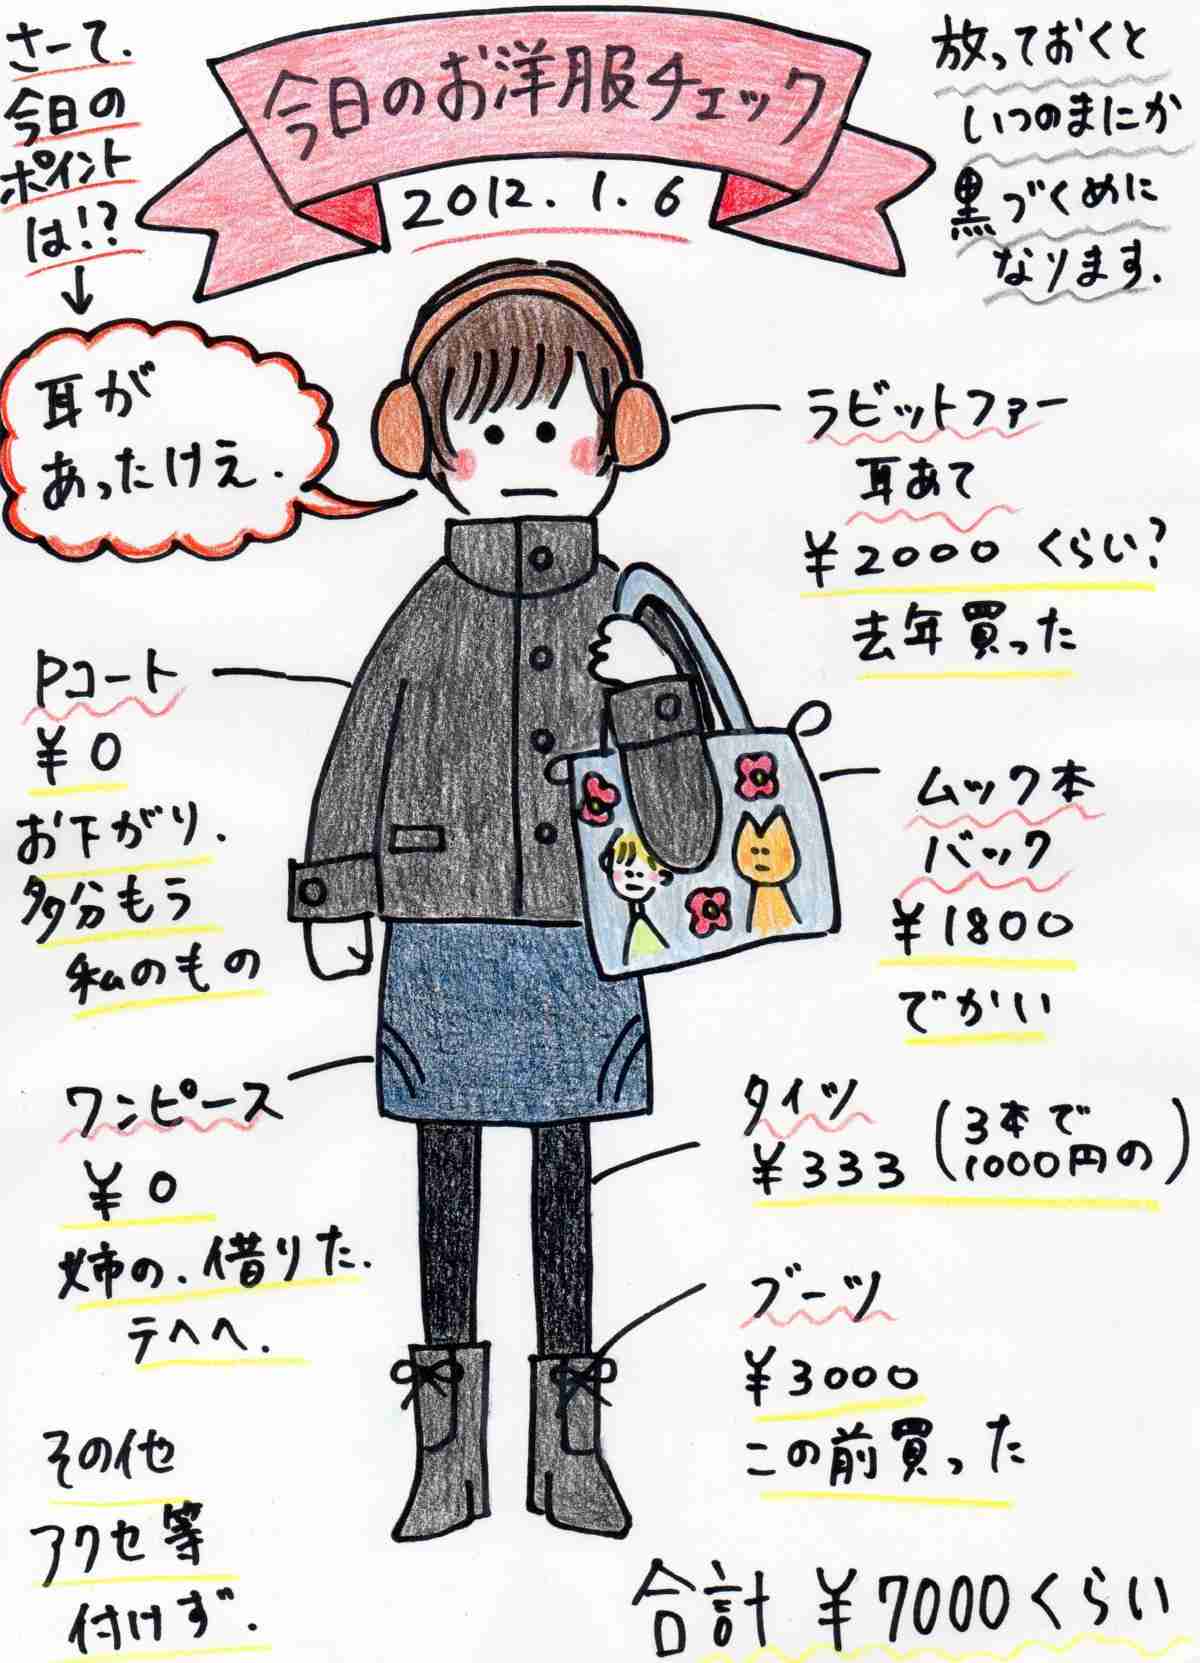 さーて.
今日の
ポイント
は!?
今日のお洋服チェック
2012.1.6
放っておくと
いつのまにか
黒づくめに
なります.
耳が
あったけえ.
ラビットファー
耳あて
¥2000くらい?
去年買った
Pコート
¥0
お下がり.
多分もう
私のもの
ムック本
バック
¥1800
でかい
ワンピース
¥0
姉の.借りた.
テヘヘ.
タイツ
¥333(3本で
1000円の)
ブーツ
¥3000
この前買った
その他
アクセ等
付けず.
合計 ¥7000くらい